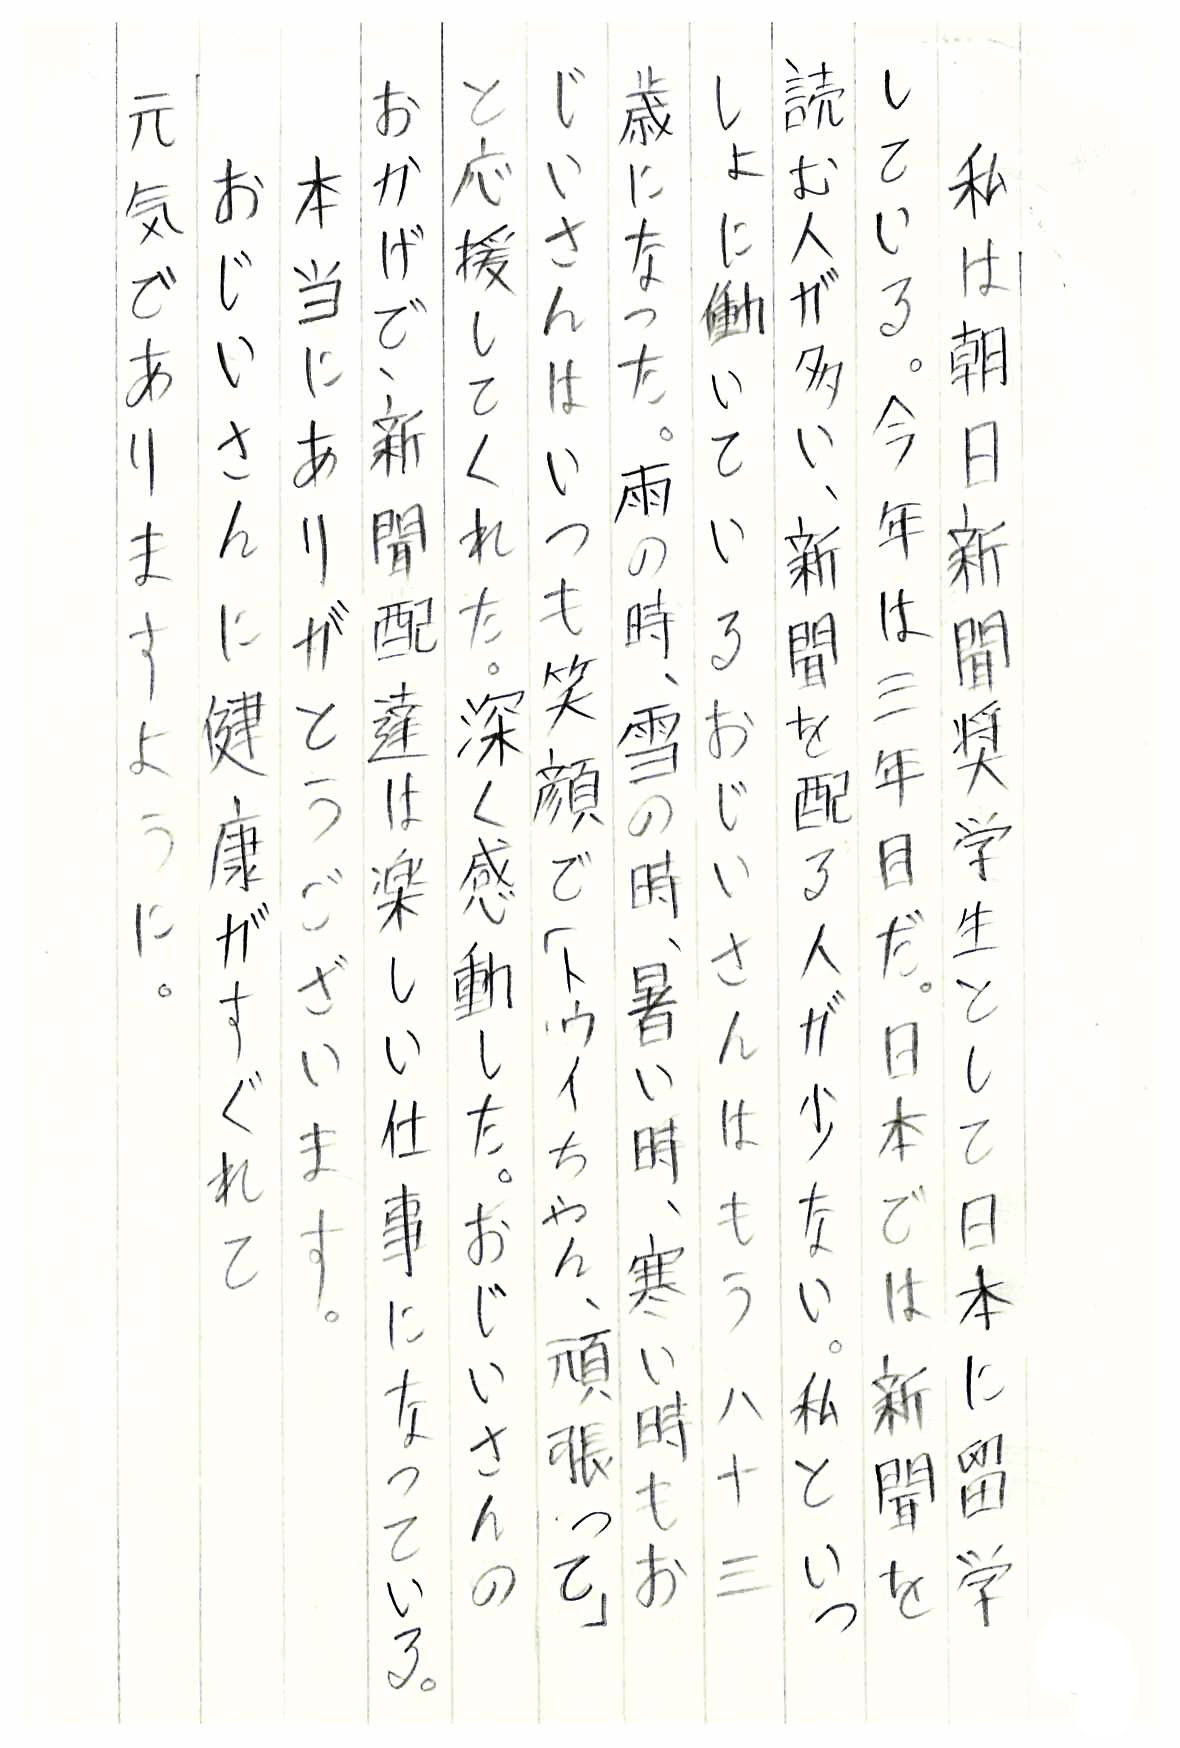 私は朝日新聞奨学生として日本に留学
している。今年は三年目だ。日本では新聞を
読む人が多い、新聞を配る人が少ない。私といっ
しょに働いているおじいさんはもう八十三
歳になった。雨の時、雪の時、暑い時、寒い時もお
じいさんはいつも笑顔で「トゥイちゃん、頑張って」
と応援してくれた。深く感動した。おじいさんの
おかげで、新聞配達は楽しい仕事になっている。
本当にありがとうございます。
おじいさんに健康がすぐれて
元気でありますように。